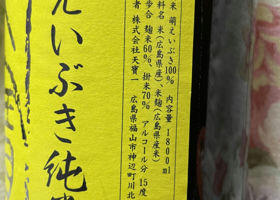 米 萌えいぶき100%
内容量 1800ml
料名 米(広島県産)、米麹(広島県産米)
歩合 麹米60%、掛米70%
アルコール分 15度
者 株式会社天寶一
広島県福山市神辺町川北
えいぶき純米